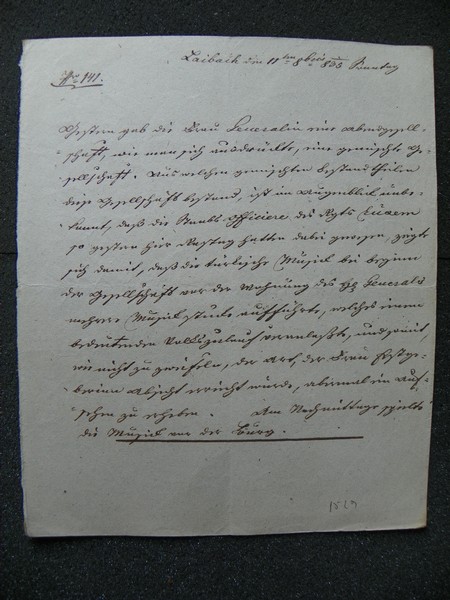 Laibach den 11ten 8bris 835 Sonntag
No 141.
Gestern gab die Frau Generalin eine Abendgesell-
schaft, wie man sich ausdrückte, eine gemischte Ge-
sellschaft. Aus welchen gemischten Bestandtheilen
diese Gesellschaft bestand, ist im Augenblick unbe-
kannt, daß die Staabs Officiere des Rgts
so gestern hier Rasttag hatten dabei gewesen, zeigte
sich damit, daß die türkische Musick bei beginn
der Gesellschaft vor der Wohnung des H Generals
mehrere Musick stücke aufführte, welches einen
bedeutenden Volkszulauf veranlaßte, und somit,
wie nicht zu zweifeln, der Art, der Frau Festge-
berinn Absicht erreicht wurde, abermal ein Auf-
sehen zu erheben. Am Nachmittage spielte
die Musick vor der Burg.
1829